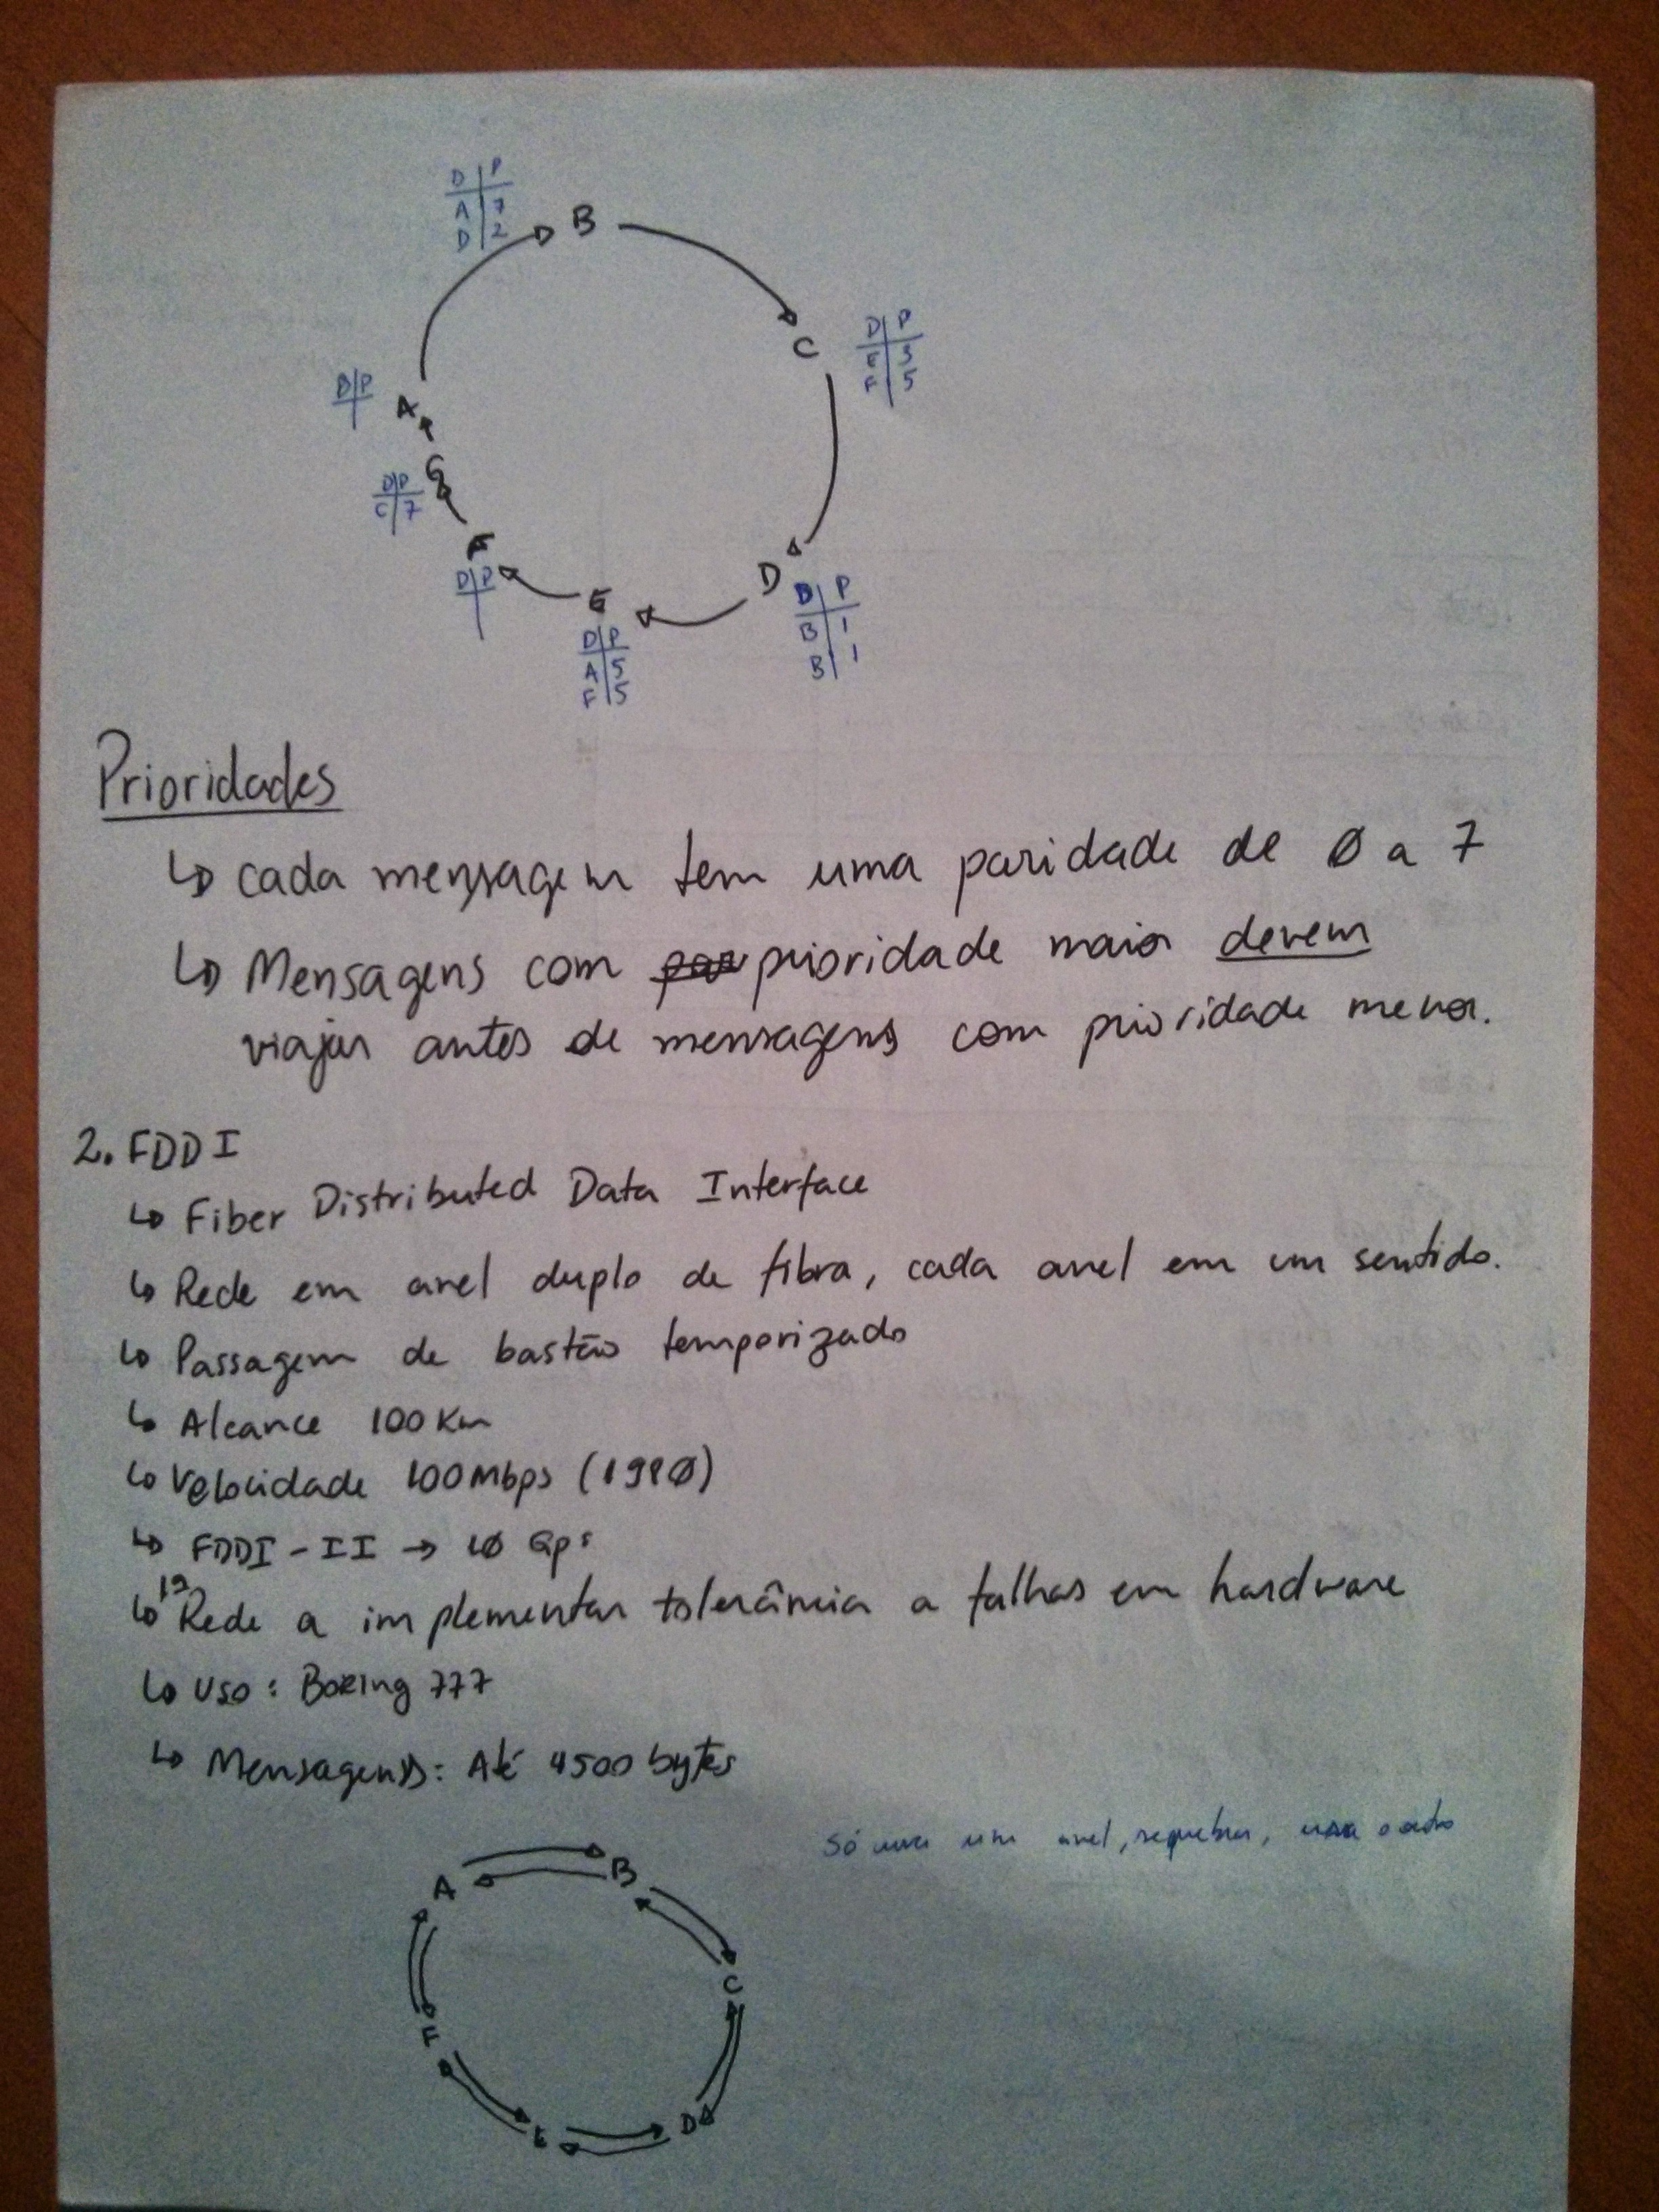 D P
A 7
D 2
B
C
D P
E 3
F 5
D P
A
G
D P
C 7
F
D P
E
D P
A 5
F 5
D
D P
B 1
B 1
Prioridades
↳ cada mensagem tem uma paridade de 0 a 7
↳ Mensagens com prioridade maior devem
viajar antes de mensagens com prioridade menor.
2. FDDI
↳ Fiber Distributed Data Interface
↳ Rede em anel duplo de fibra, cada anel em um sentido.
↳ Passagem de bastão temporizado
↳ Alcance 100 Km
↳ Velocidade 100 Mbps (1990)
↳ FDDI - II → 10 Gps
↳ 1ª Rede a implementar tolerância a falhas em hardware
↳ Uso: Boeing 777
↳ Mensagens: Até 4500 bytes
Só usa um anel, se quebrar, usa o outro
A
B
C
F
E
D